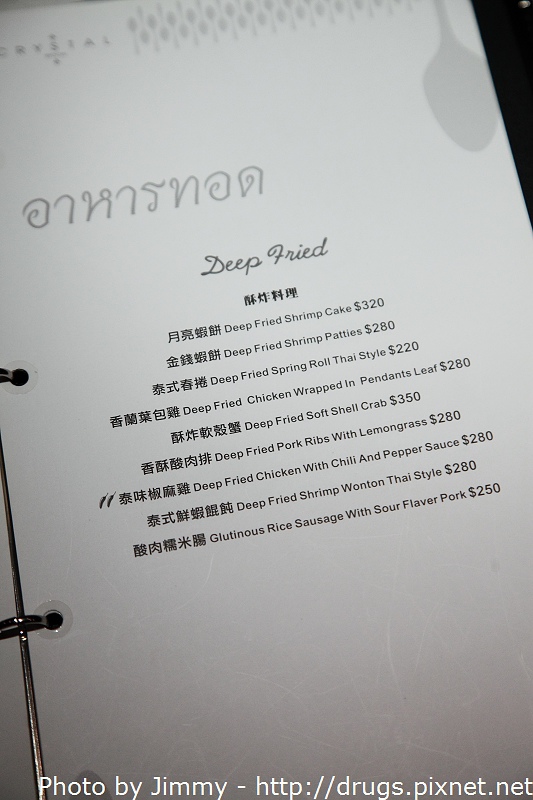 CRYSTAL
อาหารทอด
Deep Fried
酥炸料理
月亮蝦餅 Deep Fried Shrimp Cake $320
金錢蝦餅 Deep Fried Shrimp Patties $280
泰式春捲 Deep Fried Spring Roll Thai Style $220
香蘭葉包雞 Deep Fried Chicken Wrapped In Pendants Leaf $280
酥炸軟殼蟹 Deep Fried Soft Shell Crab $350
香酥酸肉排 Deep Fried Pork Ribs With Lemongrass $280
泰味椒麻雞 Deep Fried Chicken With Chili And Pepper Sauce $280
泰式鮮蝦餛飩 Deep Fried Shrimp Wonton Thai Style $280
酸肉糯米腸 Glutinous Rice Sausage With Sour Flaver Pork $250
Photo by Jimmy - http://drugs.pixnet.net